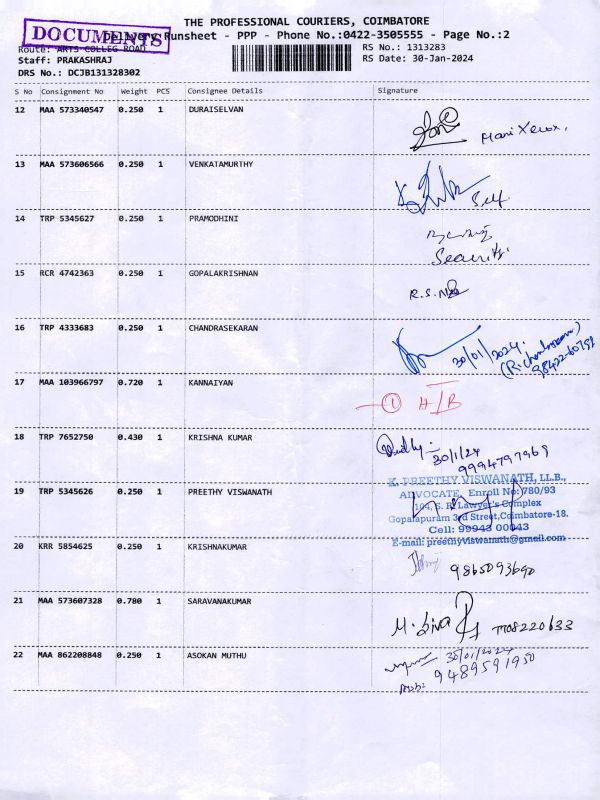 THE PROFESSIONAL COURIERS, COIMBATORE
DOCUMENTS
Delivery Runsheet - PPP - Phone No.:0422-3505555 - Page No.:2
Route: ARTS COLLEG ROAD
RS No.: 1313283
Staff: PRAKASHRAJ
RS Date: 30-Jan-2024
DRS No.: DCJB131328302
S No Consignment No Weight PCS Consignee Details Signature
12 MAA 573340547 0.250 1 DURAISELVAN
Mani Xerox.
13 MAA 573606566 0.250 1 VENKATAMURTHY
Self
14 TRP 5345627 0.250 1 PRAMODHINI
Security.
15 RCR 4742363 0.250 1 GOPALAKRISHNAN
R.S.
16 TRP 4333683 0.250 1 CHANDRASEKARAN
30/01/2024.
17 MAA 103966797 0.720 1 KANNAIYAN
18 TRP 7652750 0.430 1 KRISHNA KUMAR
30/1/24
9994797969
19 TRP 5345626 0.250 1 PREETHY VISWANATH
K. PREETHY VISWANATH, LL.B.,
ADVOCATE, Enroll No:780/93
104, S. R. Lawyer's Complex
Gopalapuram 3rd Street, Coimbatore-18.
Cell: 99943 00043
E-mail: preethyviswanath@gmail.com
20 KRR 5854625 0.250 1 KRISHNAKUMAR
9865093690
21 MAA 573607328 0.780 1 SARAVANAKUMAR
M. Siva 7708220633
22 MAA 862208848 0.250 1 ASOKAN MUTHU
30/01/2024
9489591950